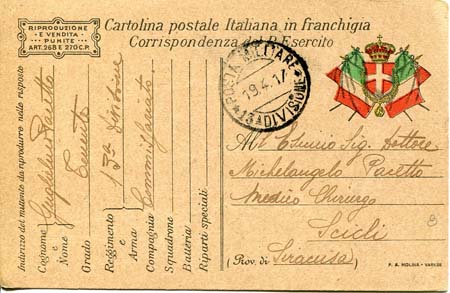 RIPRODUZIONE
E VENDITA
PUNITE
ART. 268 E 270 C.P.
Cartolina postale Italiana in franchigia
Corrispondenza del R. Esercito
POSTA MILITARE
19.4.17
13ª DIVISIONE
Indirizzo del mittente da riprodurre nelle risposte
Cognome e Nome Guglielmo Pacetto
Grado Tenente
Reggimento e Arma 13ª divisione
Compagnia Commissariato
Squadrone
Batteria
Riparti speciali
All Esimio Sig. Dottore
Michelangelo Pacetto
Medico Chirurgo
Scicli
(Prov. di Siracusa)
F. A. MOLINA - VARESE